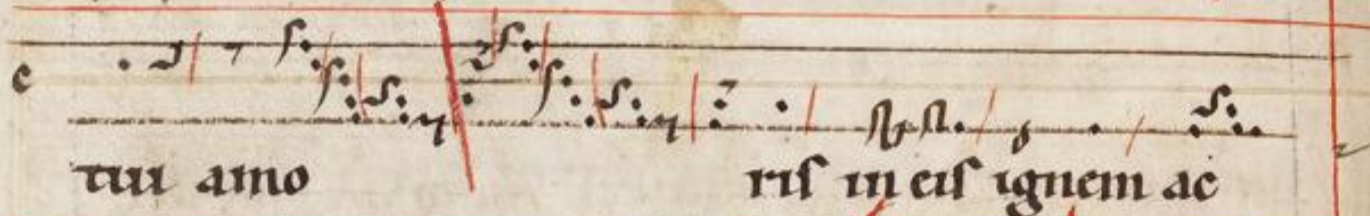 c
tui amo ris in eis ignem ac